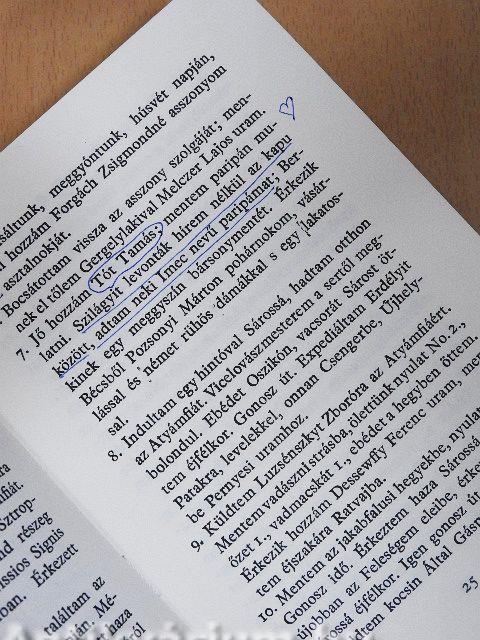 sáltunk, meggyóntunk, húsvét napján,
hozzám Forgách Zsigmondné asszonyom
asztalnokját.
Bocsátottam vissza az asszony szolgáját; men-
nek el tőlem Gergelylakival Melczer Lajos uram.
7. Jő hozzám Tót Tamás; mentem paripán mu-
latni. Szilágyit levonták hírem nélkül az kapu
között, adtam neki Imec nevű paripámat; Ber-
kinek egy meggyszín bársonymentét. Érkezik
Bécsből Pozsonyi Márton pohárnokom, vásár-
lással és német rühös dámákkal s egy lakatos-
sal.
8. Indultam egy hintóval Sárossá, hadtam otthon
az Atyámfiát. Vicelovászmesterem a sertől meg-
bolondul. Ebédet Oszikón, vacsorát Sárost öt-
tem éjfélkor. Gonosz út. Expediáltam Erdélyit
Patakra, levelekkel, onnan Csengerbe, Újhely-
be Pernyesi uramhoz.
9. Küldtem Luzsénszkyt Zboróra az Atyámfiáért.
Mentem vadászni strásba, ölettünk nyulat No. 2.,
őzet 1., vadmacskát 1., ebédet a hegyben öttem.
Érkezik hozzám Dessewffy Ferenc uram, men-
tem éjszakára Ratvajba.
10. Mentem az jakabfalusi hegyekbe, nyulat
Gonosz idő. Érkeztem haza Sárossá
újobban az Feleségem eleibe, érke
ossá éjfélkor. Igen gonosz út
drem kocsin Által Gásp
25
ra
fiát.
Sztrop-
ld részeg
issios Signis
ban. Érkezett
találtam az
pján. Mé-
haza
ról